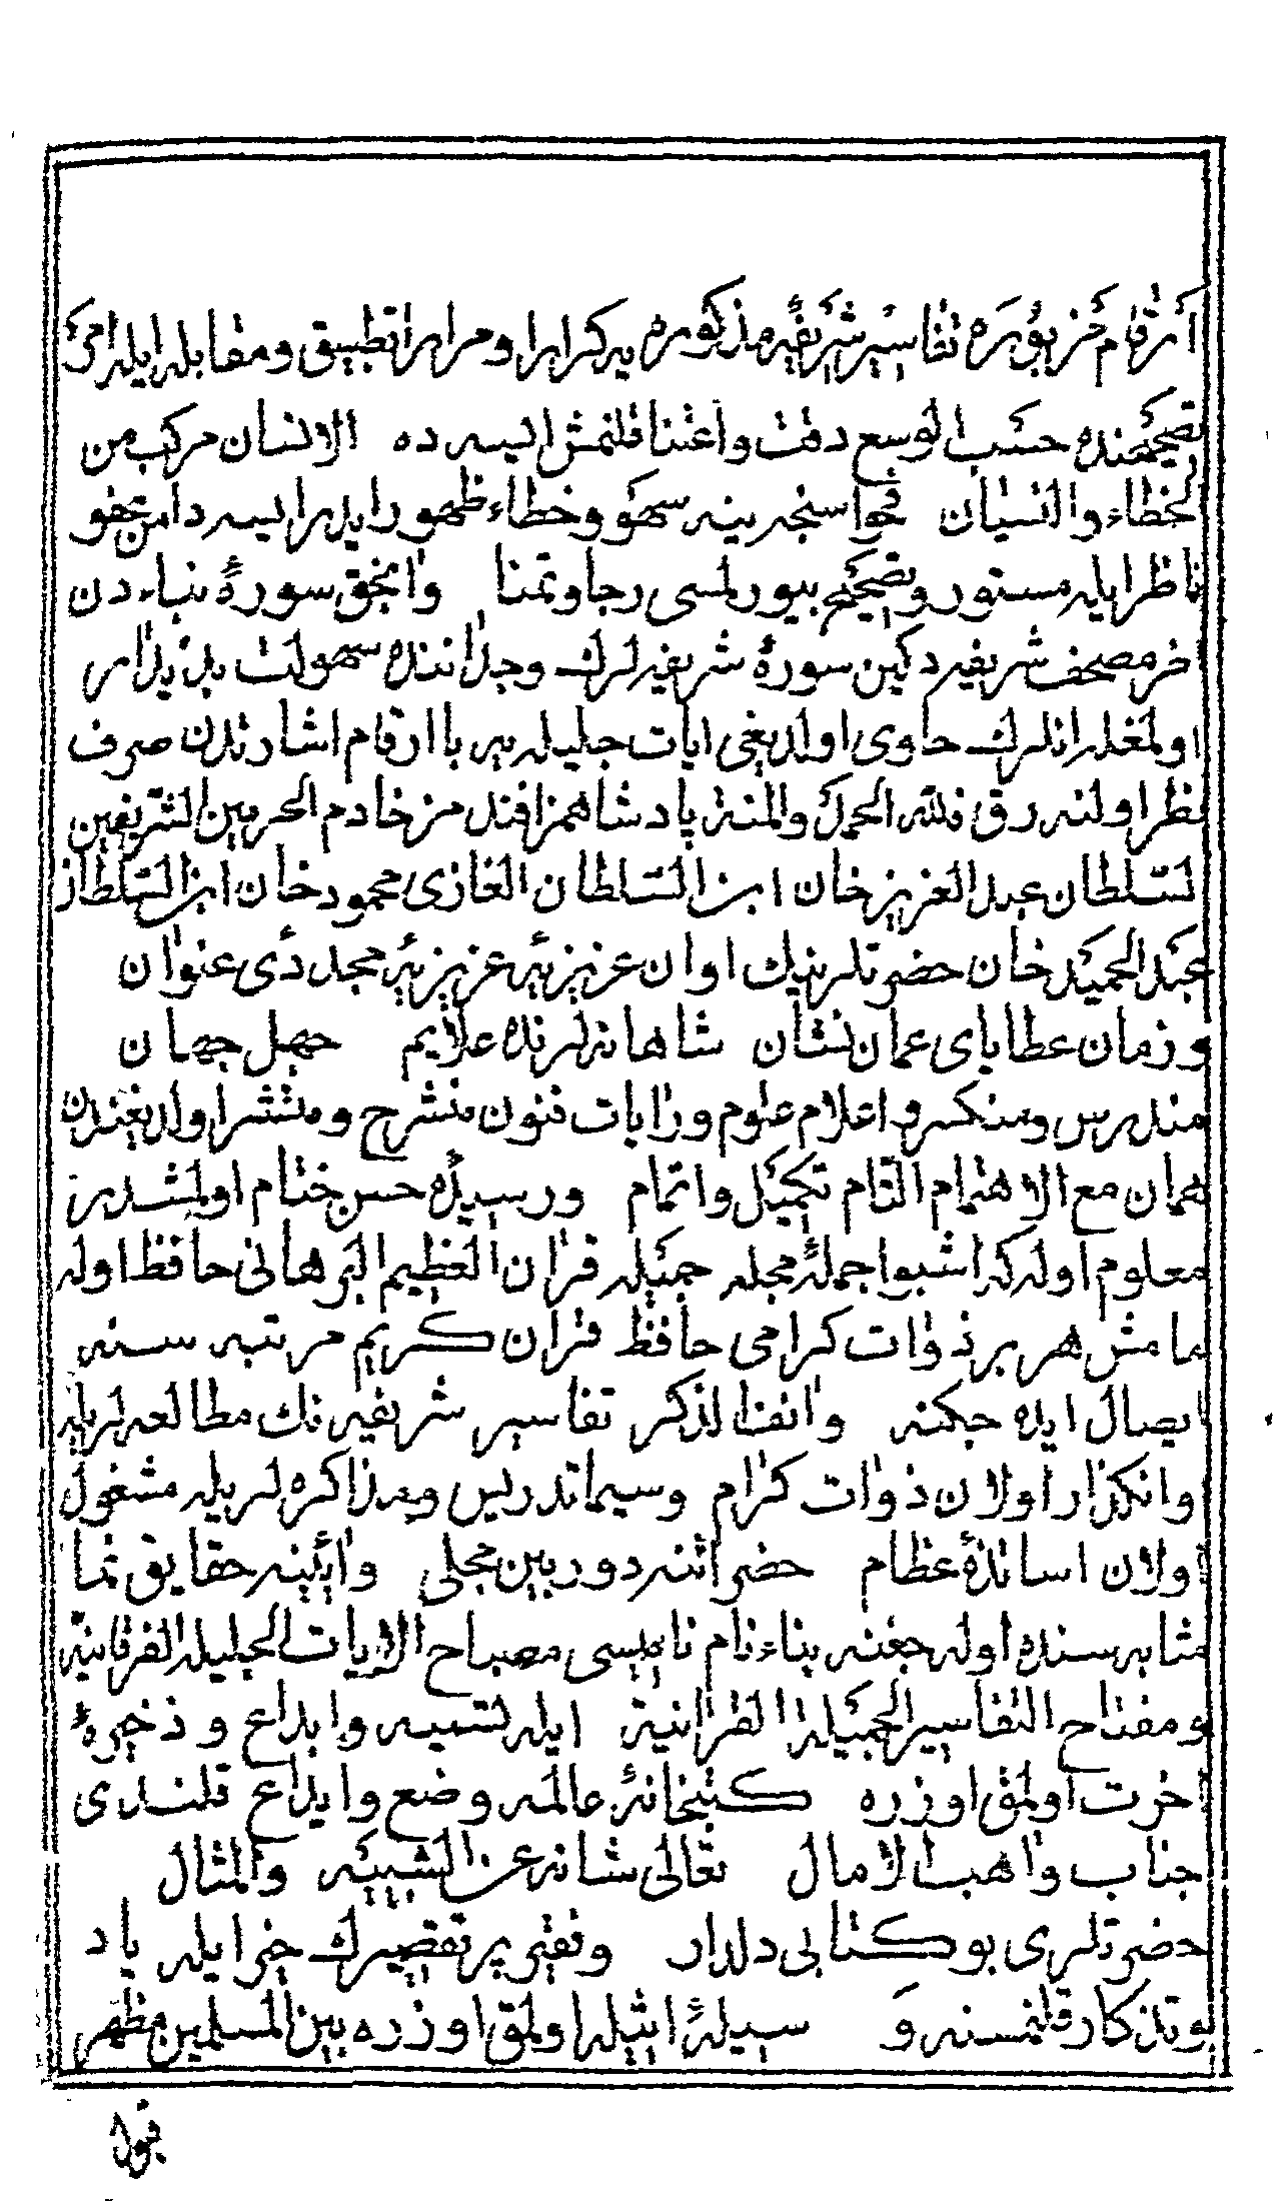 ارقام مزبوره تفاسير شريفه مذكوره يه كرارا ومرارا تطبيق ومقابله ايله امر
تصحيحنده حسب الوسع دقت واعتنا قلنمش ايسه ده الانسان مركب من
الخطاء والنسيان فحواسنجه ينه سهو وخطاء ظهور ايدر ايسه دامن عفو
ناظر ايله مستور وتصحيح بيورلمسى رجا وتمنا وانجق سورۀ نباء دن
اخر مصحف شريفه دكين سورۀ شريفه لرك وجداننده سهولت بديدار
اولمغله انلرك حاوى اولديغى ايات جليله يه با ارقام اشارتدن صرف
نظر اولنه رق فلله الحمد والمنة پادشاهمز افندمز خادم الحرمين الشريفين
السلطان عبد العزيز خان ابن السلطان الغازى محمود خان ابن السلطان
عبد الحميد خان حضرتلرينك اوان عزيزيه عزيزيه مجددى عنوان
وزمان عطاياى عمان نشان شاهانه لرنده علايم جهل جهان
مندرس ومنكسر و اعلام علوم ورايات فنون منشرح ومنتشر اولديغندن
همان مع الاهتمام التام تكميل واتمام ورسيدۀ حسن ختام اولمشدر
معلوم اوله كه اشبو جملۀ مجله جميله قران العظيم البرهانى حافظ اوله
مامش هر بر ذوات كرامى حافظ قران كريم مرتبه سنه
ايصال ايده جكنه وانفا الذكر تفاسير شريفه نك مطالعه لريله
وانكذار اولان ذوات كرام وسيما تدريس ومذاكره لريله مشغول
اولان اساتذۀ عظام حضراتنه دوربين مجلى وائينه حقايق نما
مثابه سنده اوله جغنه بناء نام ناميسى مصباح الايات الجليلة الفرقانية
ومفتاح التفاسير الجميلة القرانية ايله تسميه وابداع و ذخيرۀ
اخرت اولمق اوزره كتبخانۀ عالمه وضع وايداع قلندى
جناب واهب الامال تعالى شانه عن الشبيه والمثال
حضرتلرى بو كتابى دلدار وفقير پر تقصيرك خير ايله ياد
بو تذكار قلنمسنه و سيلۀ ايثله اولمق اوزره بين المسلمين مظهر
قبول